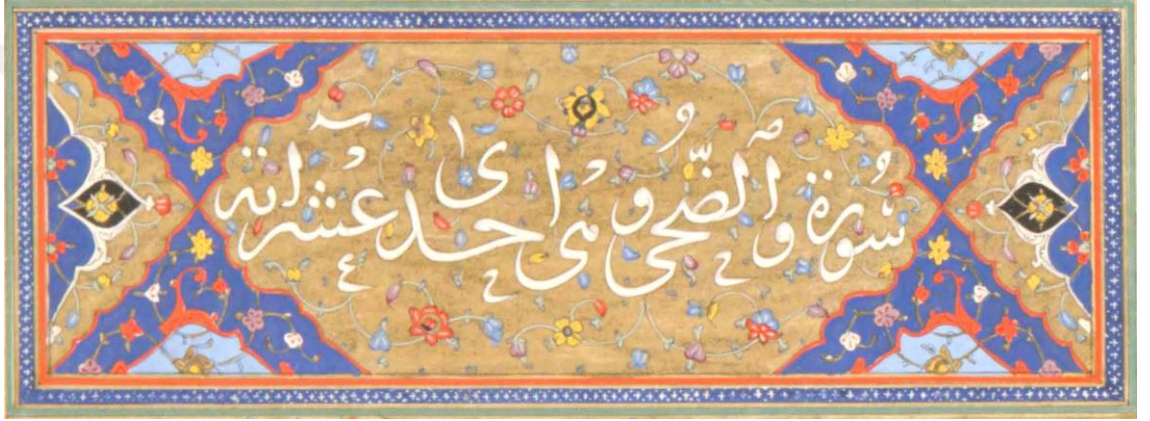 سورة والضحى وهى احدى عشر آية